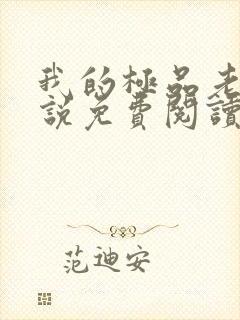 我的極品老
說免費閱讀
范迪安